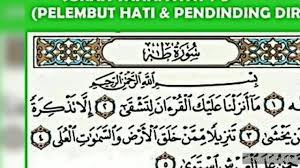 (PELEMBUT HATI & PENDINDING DIR
سُورَةُ طه
بِسْمِ اللَّهِ الرَّحْمَٰنِ الرَّحِيمِ
١ مَا أَنزَلْنَا عَلَيْكَ الْقُرْءَانَ لِتَشْقَىٰ ٢ إِلَّا تَذْكِرَةً
يَخْشَىٰ ٣ تَنزِيلًا مِّمَّنْ خَلَقَ الْأَرْضَ وَالسَّمَٰوَٰتِ الْعُلَى ٤